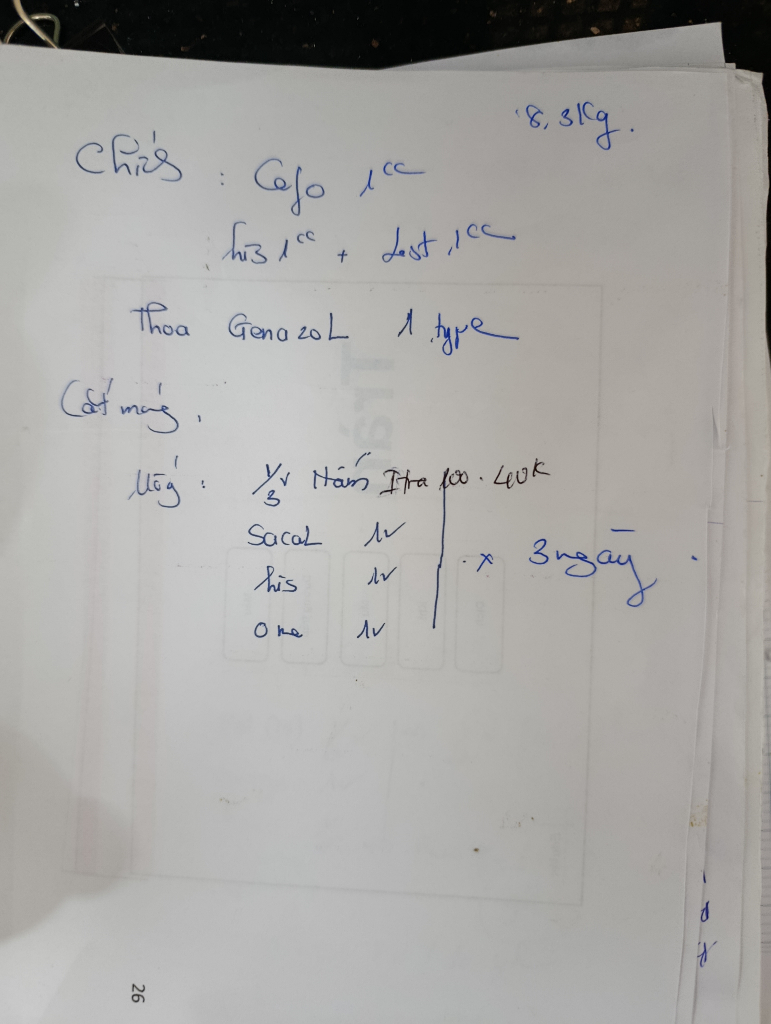 8,3Kg.
Chích : Cefo 1cc
his 1cc + Dest 1cc
Thoa Genazol 1 type
Cắt móng.
Uống : 1/3v Nấm Itra 100. 40K
Sacal 1v
his 1v x 3 ngày
One 1v
26